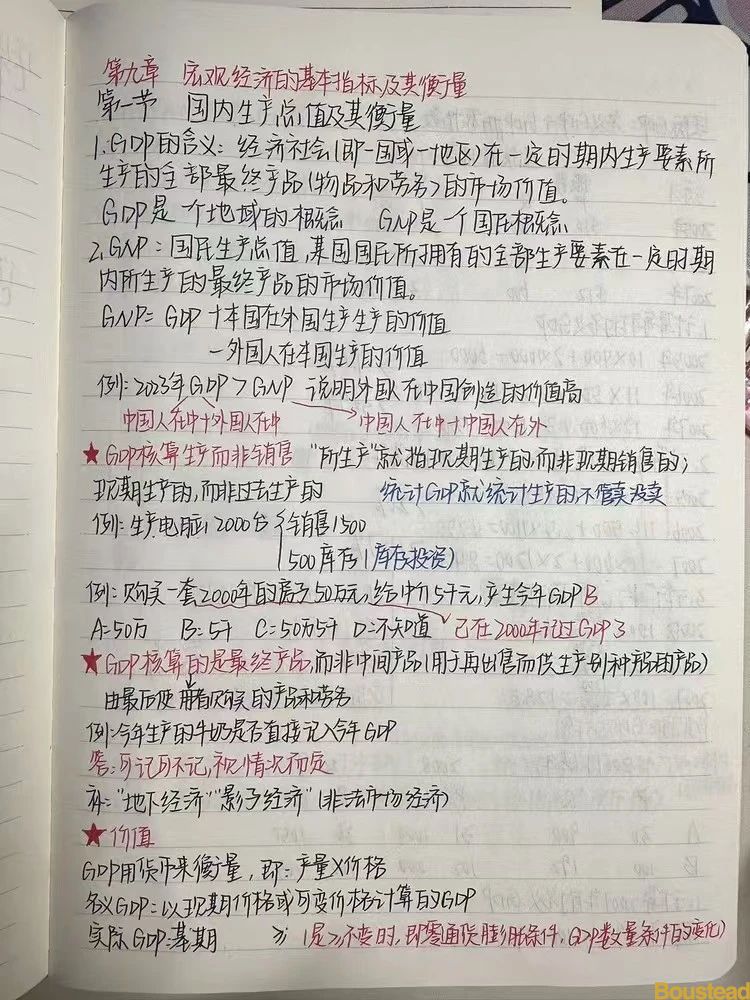 第九章 宏观经济的基本指标及其衡量
第一节 国内生产总值及其衡量
1.GDP的含义:经济社会(即一国或一地区)在一定的期内生产要素所
生产的全部最终产品(物品和劳务)的市场价值。
GDP是一个地域的概念 GNP是一个国民概念
2.GNP:国民生产总值,某国国民所拥有的全部生产要素在一定时期
内所生产的最终产品的市场价值。
GNP=GDP+本国在外国生产生产的价值
-外国人在本国生产的价值
例:2023年GDP>GNP 说明外国人在中国创造的价值高
中国人在中+外国人在中 中国人在中+中国人在外
★GDP核算生产而非销售 "所生产"就指现期生产的,而非现期销售的;
现期生产的,而非过去生产的 统计GDP就统计生产的,不管卖没卖
例:生产电脑12000台 销售1500
500库存(库存投资)
例:购买一套2000年的房子50万元,给中介5千元,产生今年GDP B
A=50万 B=5千 C=50万5千 D=不知道 已在2000年记过GDP了
★GDP核算的是最终产品,而非中间产品(用于再出售而供生产别种产品的产品)
由最后使用者购买的产品和劳务
例:今年生产的牛奶是否直接记入今年GDP
答:可记可不记,视情况而定
补:"地下经济""影子经济"(非法市场经济)
★价值
GDP用货币来衡量,即:产量X价格
名义GDP:以现期价格或可变价格计算的GDP
实际GDP:基期 (是 不变的,即零通货膨胀条件,GDP数量条件的变化)
Boustead